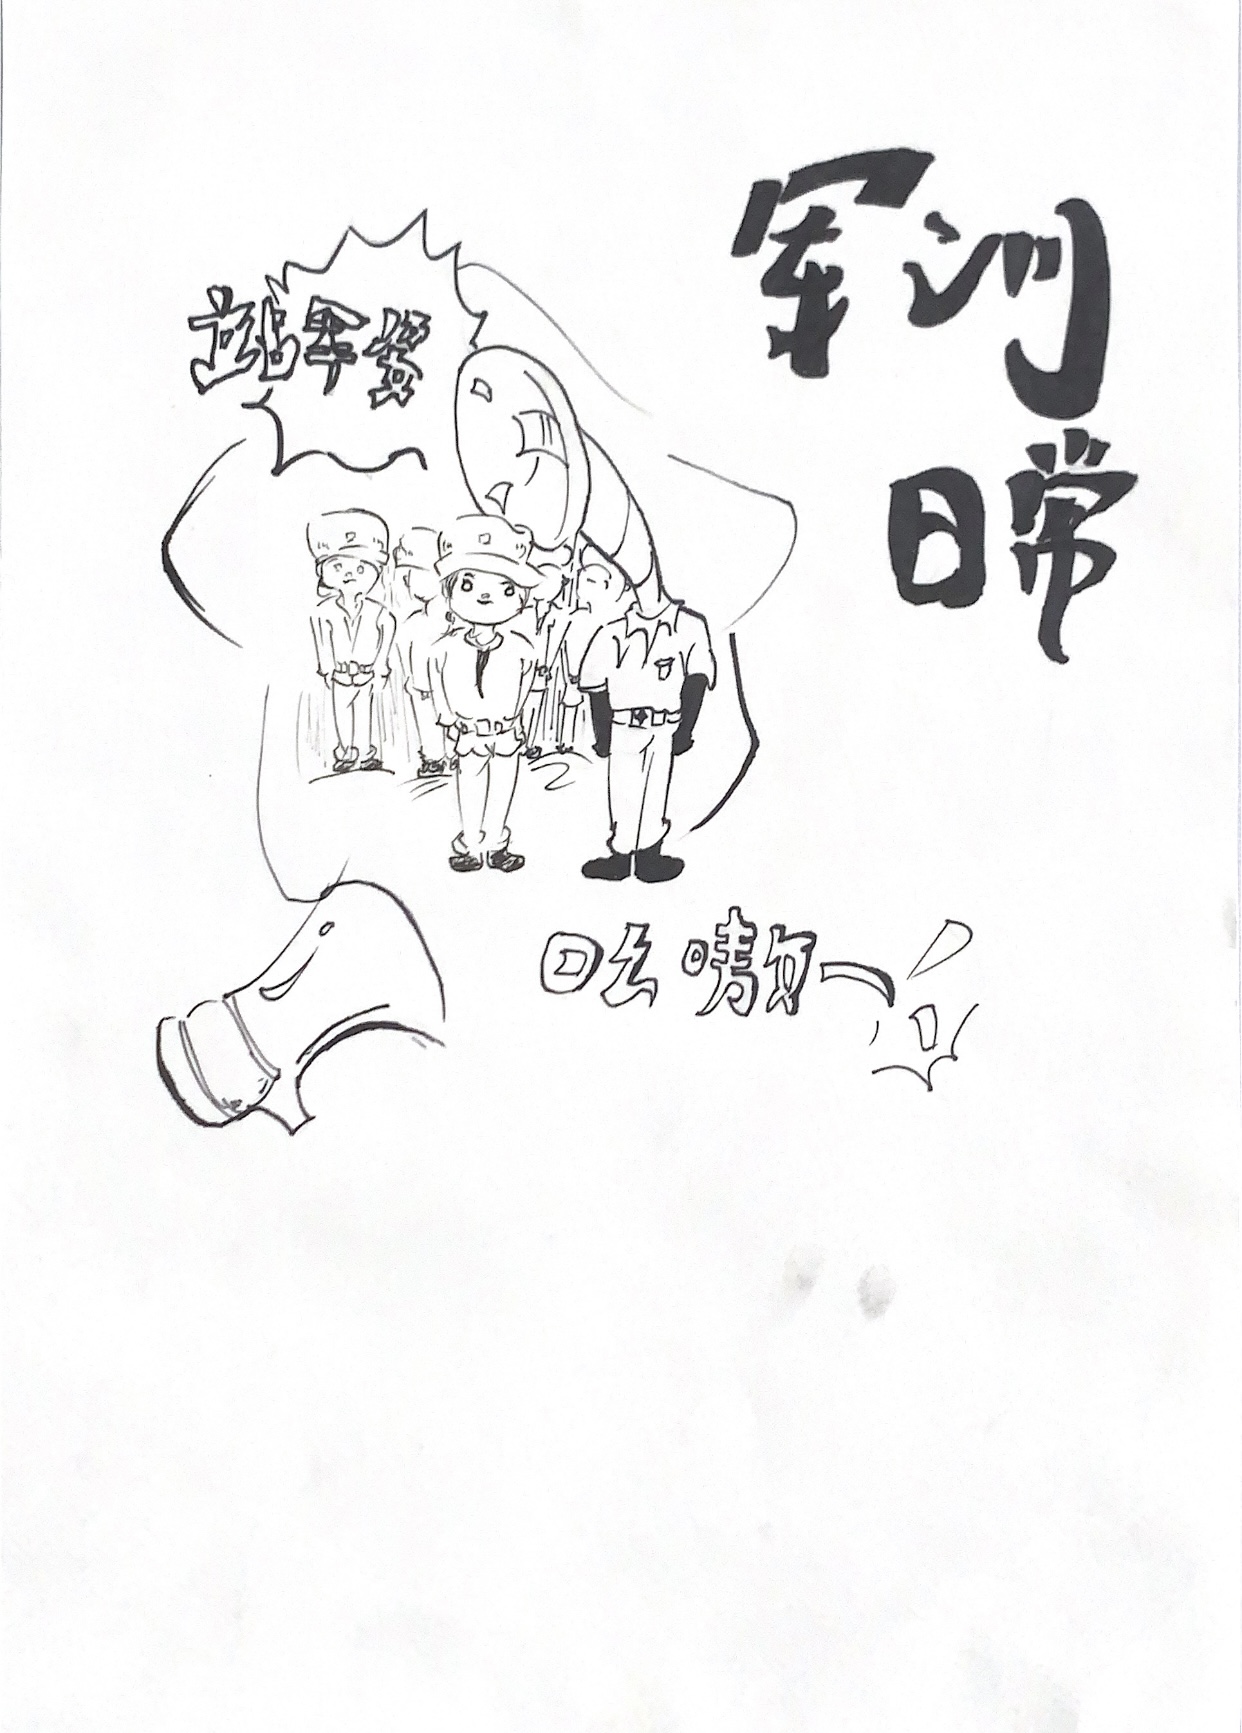 军训
日常
站军姿
嗷一!